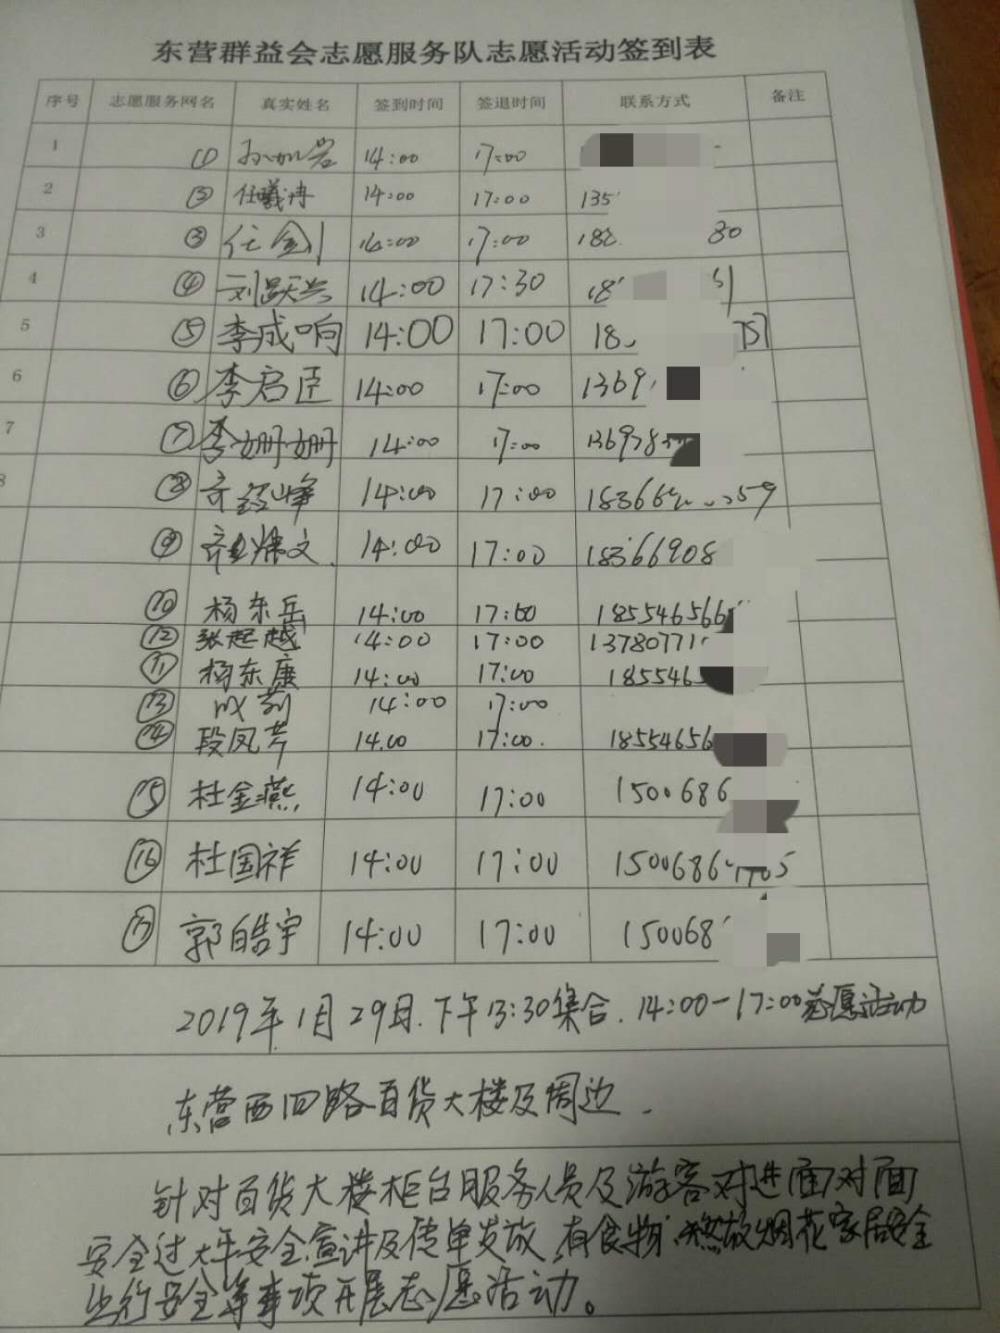 东营群益会志愿服务队志愿活动签到表
序号 志愿服务网名 真实姓名 签到时间 签退时间 联系方式 备注
1 ① 14:00 17:00
2 ② 任曦冉 14:00 17:00 135
3 ③ 任金 14:00 17:00 188 30
4 ④ 刘跃兴 14:00 17:30 18
5 ⑤ 李成响 14:00 17:00 18
6 ⑥ 李启臣 14:00 17:00 1369
7 ⑦ 李姗姗 14:00 17:00 13697
8 ⑧ 齐 峰 14:00 17:00 18366 59
⑨ 齐 文 14:00 17:00 18366908
⑩ 杨东岳 14:00 17:00 185546566
⑫ 张起越 14:00 17:00 13780771
⑪ 杨东康 14:00 17:00 185546
⑬ 14:00 17:00
⑭ 段凤芹 14:00 17:00. 18554656
⑮ 杜金燕 14:00 17:00 1500686
⑯ 杜国祥 14:00 17:00 1500686
⑰ 郭皓宇 14:00 17:00 150068
2019年1月29日.下午13:30集合.14:00-17:00志愿活动
东营西四路百货大楼及周边.
针对百货大楼柜台服务人员及游客对进面对面
安全过大年安全宣讲及传单发放,有食物.燃放烟花家居安全
出行安全等事项开展志愿活动。